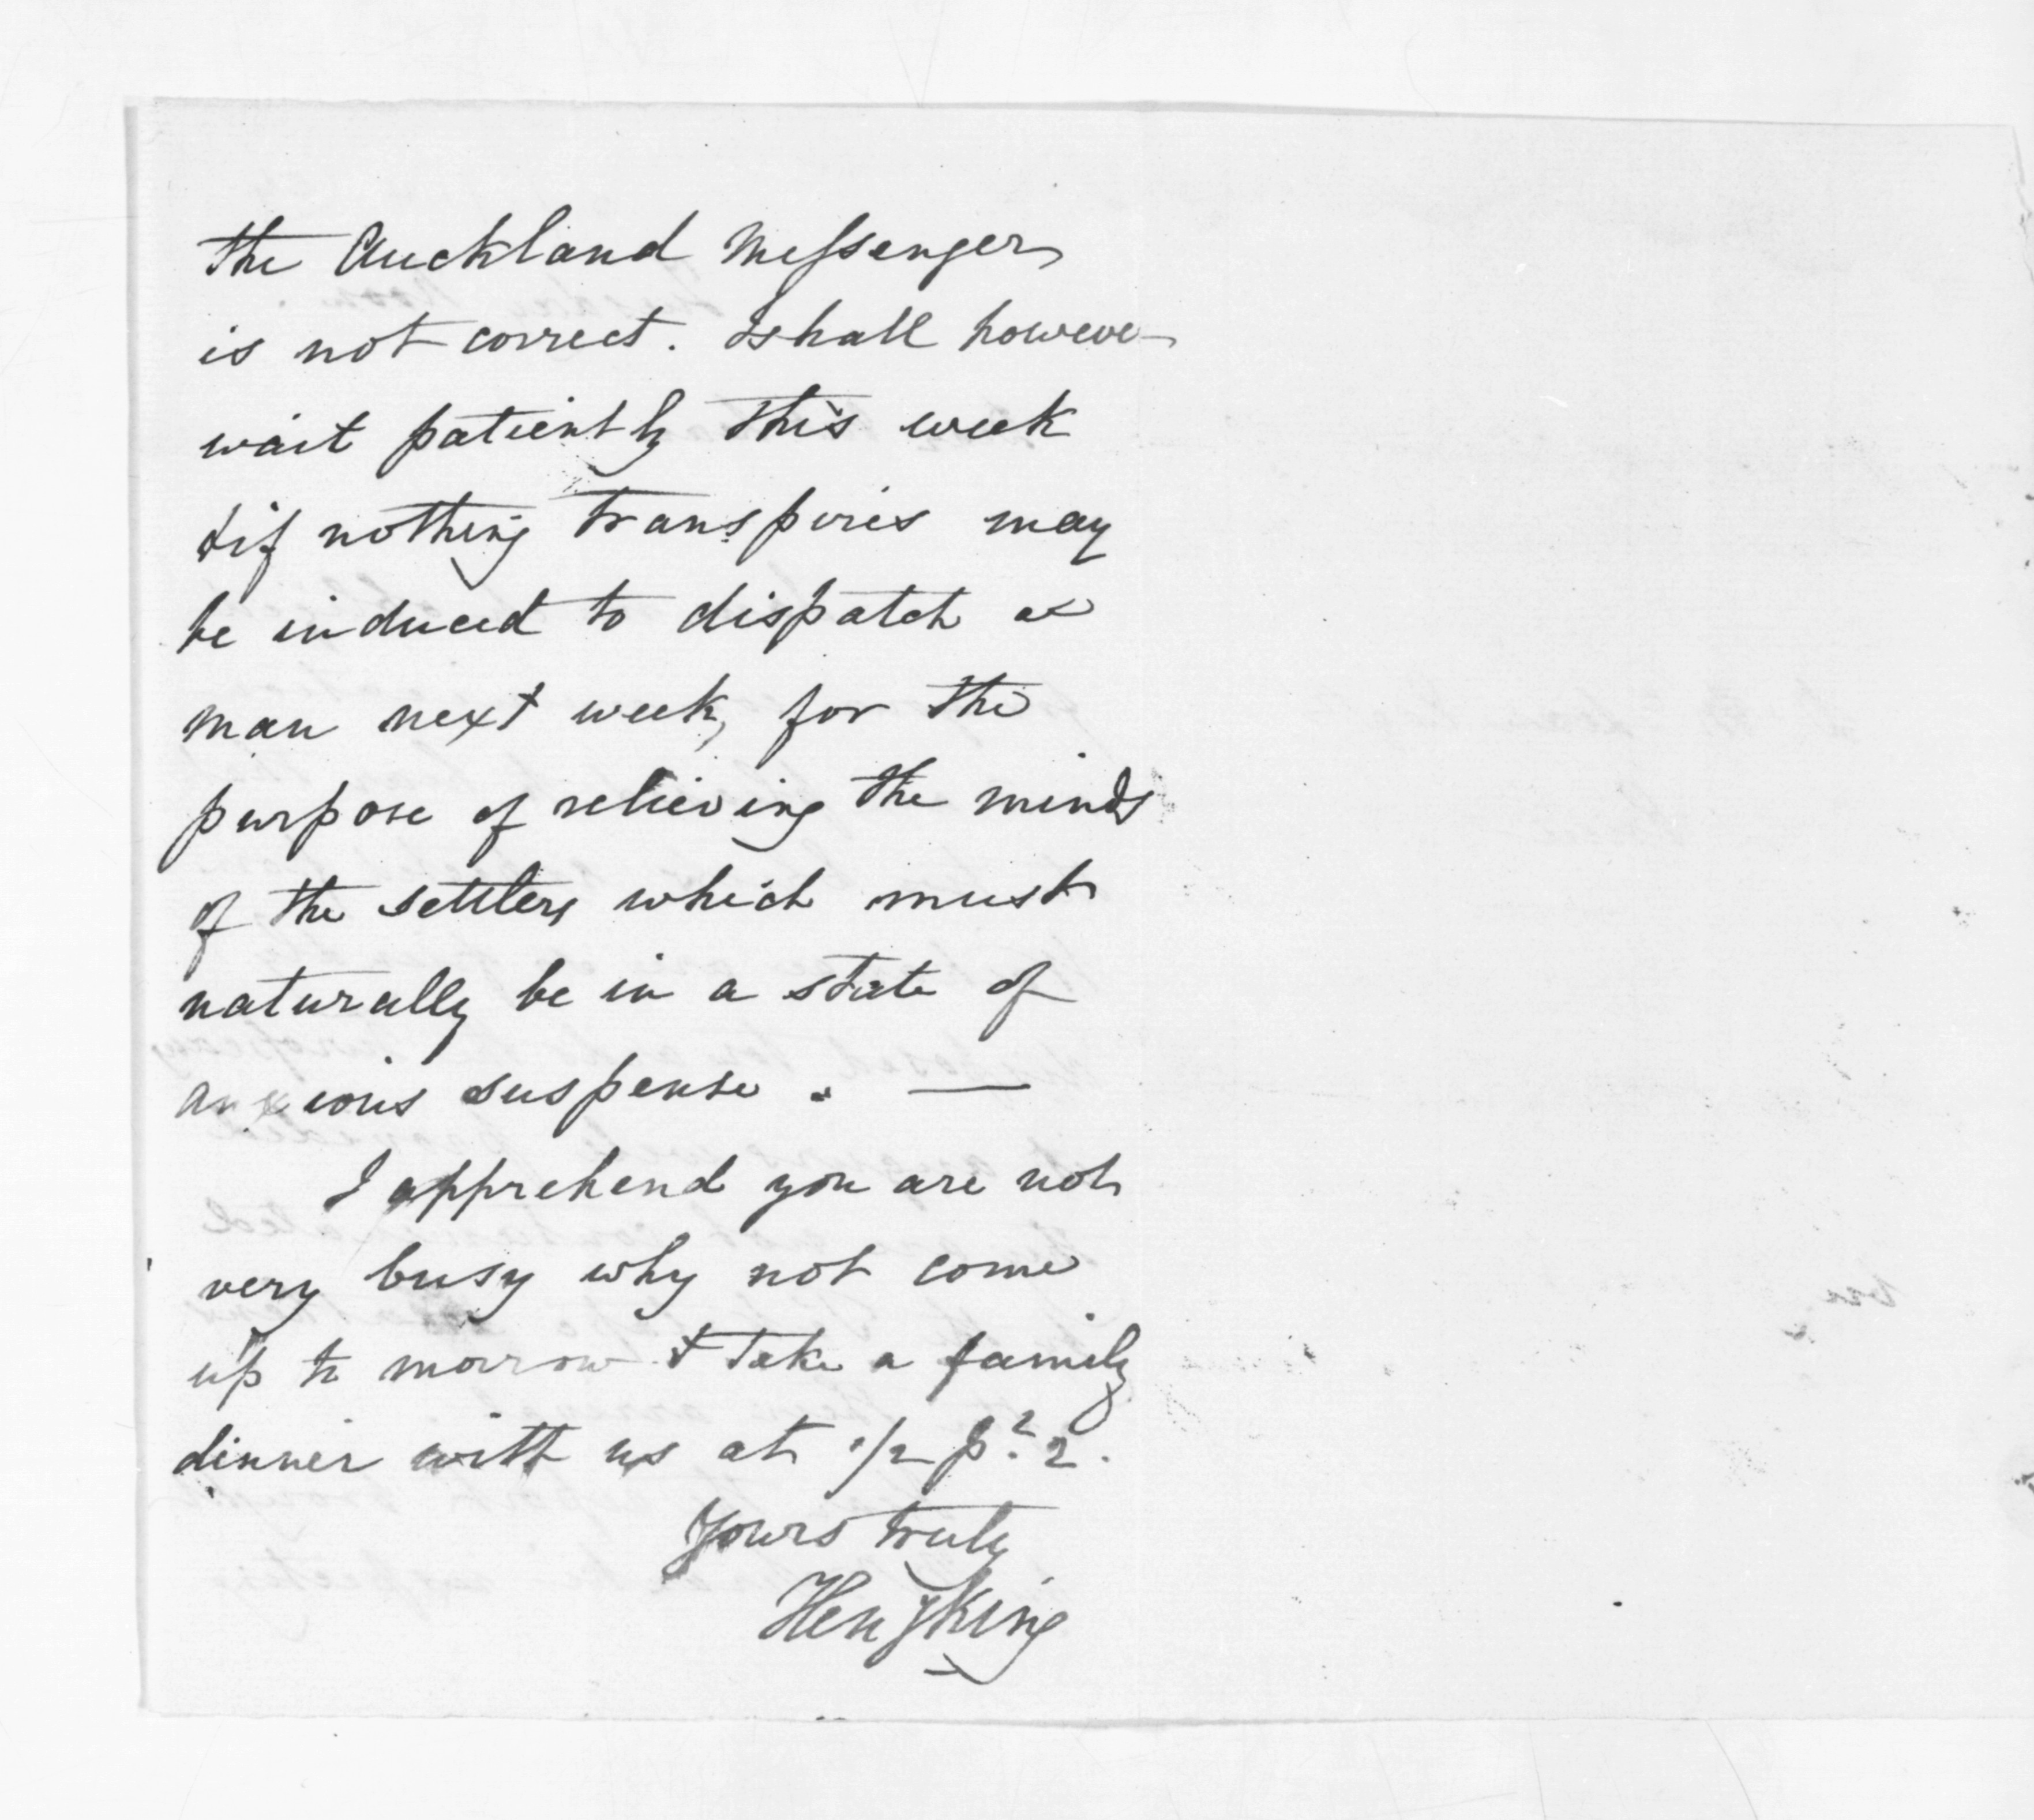 the Auckland Messenger
is not correct. I shall however
wait patiently this week
& if nothing transpires may
be induced to dispatch a
man next week, for the
purpose of relieving the minds
of the settlers which must
naturally be in a state of
anxious suspense. —
I apprehend you are not
very busy why not come
up to morrow & take a family
dinner with us at 1/2 p. 2.
Yours truly
Hen y King